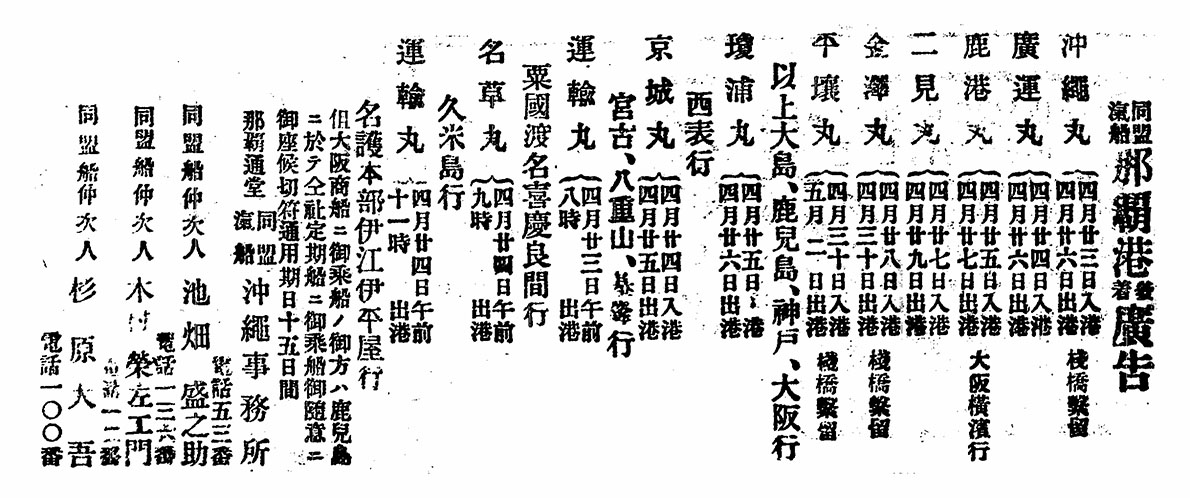 同盟滊船那覇港發着廣告
沖繩丸 四月廿三日入港 四月廿六日出港 棧橋繫留
廣運丸 四月廿四日入港 四月廿六日出港
鹿港丸 四月廿五日入港 四月廿七日出港 大阪橫濱行
二見丸 四月廿七日入港 四月廿九日出港
金澤丸 四月廿八日入港 四月三十日出港 棧橋繫留
平壤丸 四月三十日入港 五月二日出港 棧橋繫留
以上大島、鹿兒島、神戶、大阪行
瓊浦丸 四月廿五日入港 四月廿六日出港
西表行
京城丸 四月廿四日入港 四月廿五日出港
宮古、八重山、基隆行
運輸丸 四月廿三日午前八時 出港
粟國渡名喜慶良間行
名草丸 四月廿四日午前九時 出港
久米島行
運輸丸 四月廿四日午前十一時 出港
名護本部伊江伊平屋行
但大阪商船ニ御乘船ノ御方ハ鹿兒島
ニ於テ仝社定期船ニ御乘船御隨意ニ
御座候切符通用期日十五日間
那覇通堂 同盟滊船 沖繩事務所
電話五三番
同盟船仲次人 池畑盛之助
電話一三六番
同盟船仲次人 木村榮左工門
電話一一二番
同盟船仲次人 杉原大吾
電話一〇〇番